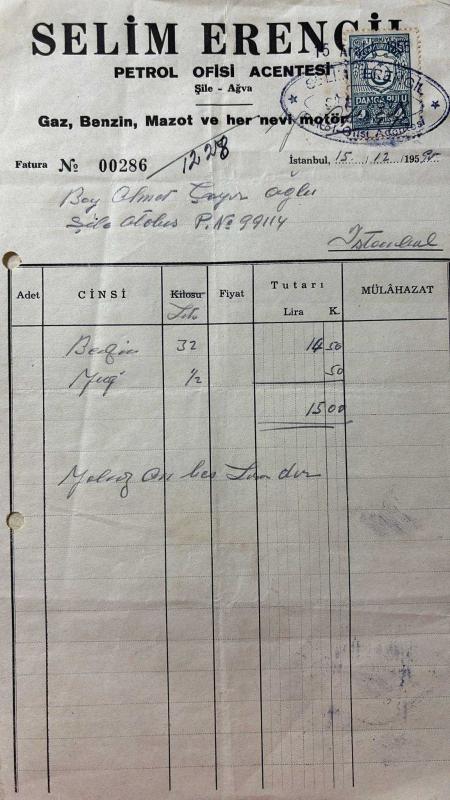 SELİM ERENGİL
PETROL OFİSİ ACENTESİ
Şile - Ağva
Gaz, Benzin, Mazot ve her nevi motör
DAMGA PULU
Fatura № 00286
1228
İstanbul, 15 / 12 / 195
Bay Ahmet oğlu
Şile P. № 99114
İstanbul
Adet CİNSİ Kilosu Fiyat Tutarı MÜLÂHAZAT
Lira K.
Benzin 32 14 50
Yağ ½ 50
15 00
Yalnız On beş Liradır